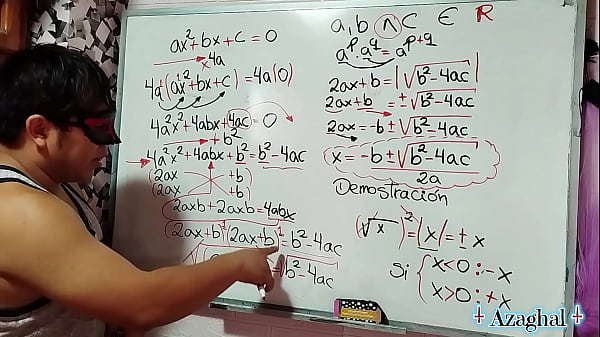 ax²+bx+c=0
x4a
4a¹(ax²+bx+c)=4a(0)
4a²x²+4abx+4ac=0
+b²
4a²x²+4abx+b²=b²-4ac
(2ax +b)
(2ax +b)
2axb+2axb=4abx
(2ax+b)¹(2ax+b)¹=b²-4ac
=√b²-4ac
a,b ∧ C ∈ R
aᵖ·a^q=a^(p+q)
2ax+b=|√b²-4ac|
2ax+b=±√b²-4ac
2ax=-b±√b²-4ac
x=-b±√b²-4ac
2a
Demostración
(√x)²=|x|=±x
Si { x<0:-x
x>0:+x
Azaghal